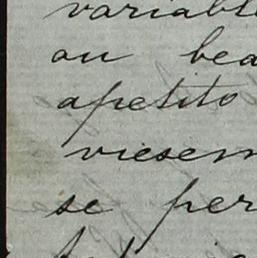 variabl
au bea
apetito
viesem
se per